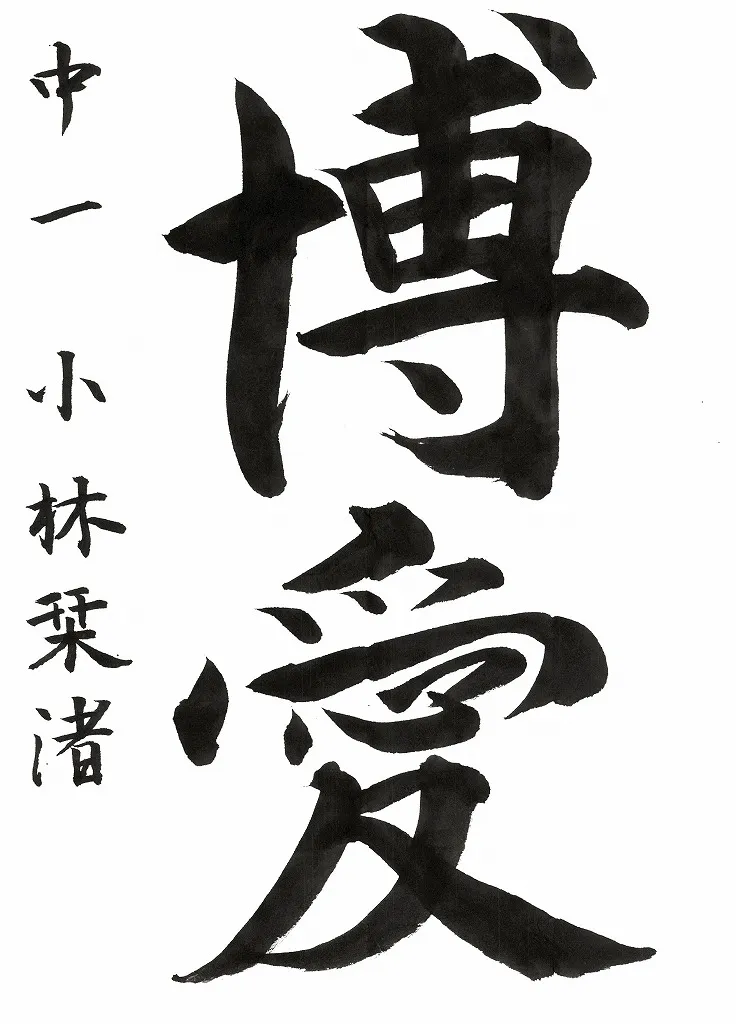 博愛
中一 小林栞渚